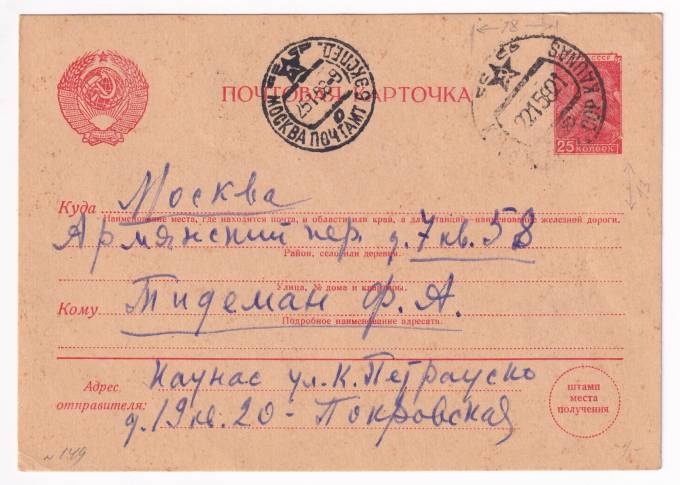 18
МОСКВА ПОЧТАМТ 6 ЭКСПЕД.
25 1 56
22 1 56 21
KAUNAS
ПОЧТОВАЯ КАРТОЧКА
СССР
25 КОПЕЕК
13
Куда Москва
Наименование места, где находится почта, и области или края, а для станций наименование железной дороги.
Армянский пер. д. 7 кв. 58
Район, село или деревня.
Улица, № дома и квартиры.
Кому Тидеман Ф. А.
Подробное наименование адресата.
Адрес отправителя: Каунас ул. К. Петрауско
д. 19 кв. 20 - Покровская
штамп
места
получения
N 149